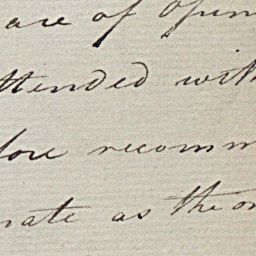 are of Opin
ttended with
fore recomm
nate as the on